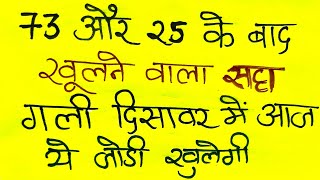 73 और 25 के बाद
खूलने वाला सट्टा
गली दिसावर में आज
ये जोडी खुलेगी